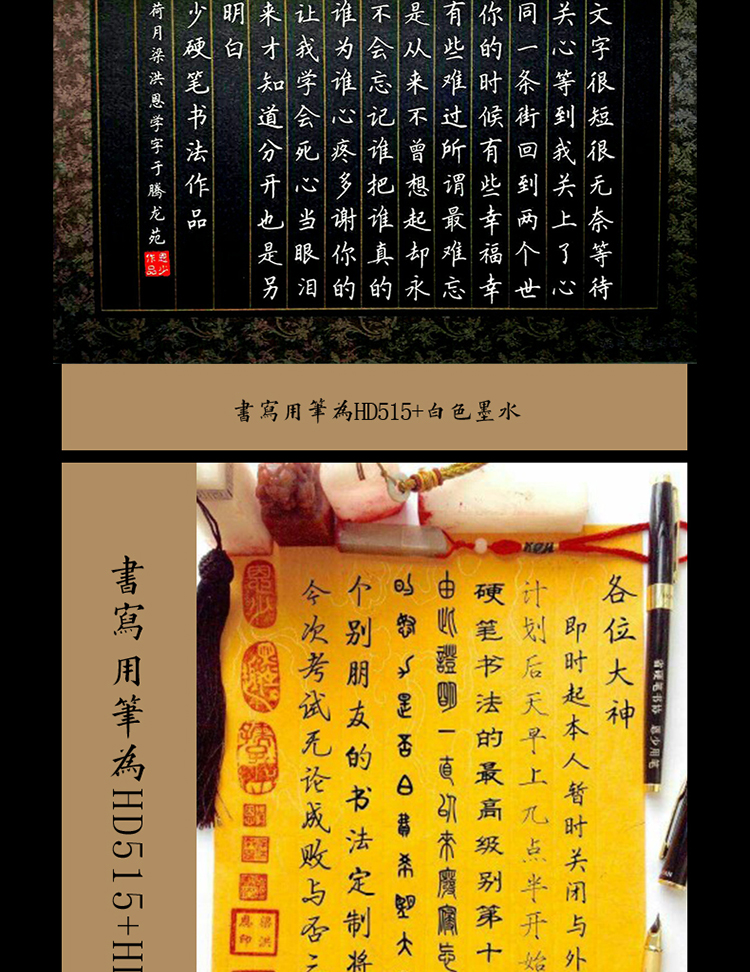 文字很短很无奈等待
关心等到我关上了心
同一条街回到两个世
你的时候有些幸福幸
有些难过所谓最难忘
是从来不曾想起却永
不会忘记谁把谁真的
谁为谁心疼多谢你的
让我学会死心当眼泪
来才知道分开也是另
明白
少硬笔书法作品
荷月梁洪恩学字于腾龙苑
恩少作品
書寫用筆為HD515+白色墨水
書寫用筆為HD515+H
各位大神
即时起本人暂时关闭与外
计划后天早上九点半开始
硬笔书法的最高级别第十
由此證明一直以来廢寢忘
的努力是否白費希望大
个别朋友的书法定制将
今次考试无论成败与否
恩少
梁洪恩印
硬笔书协 恩少用笔